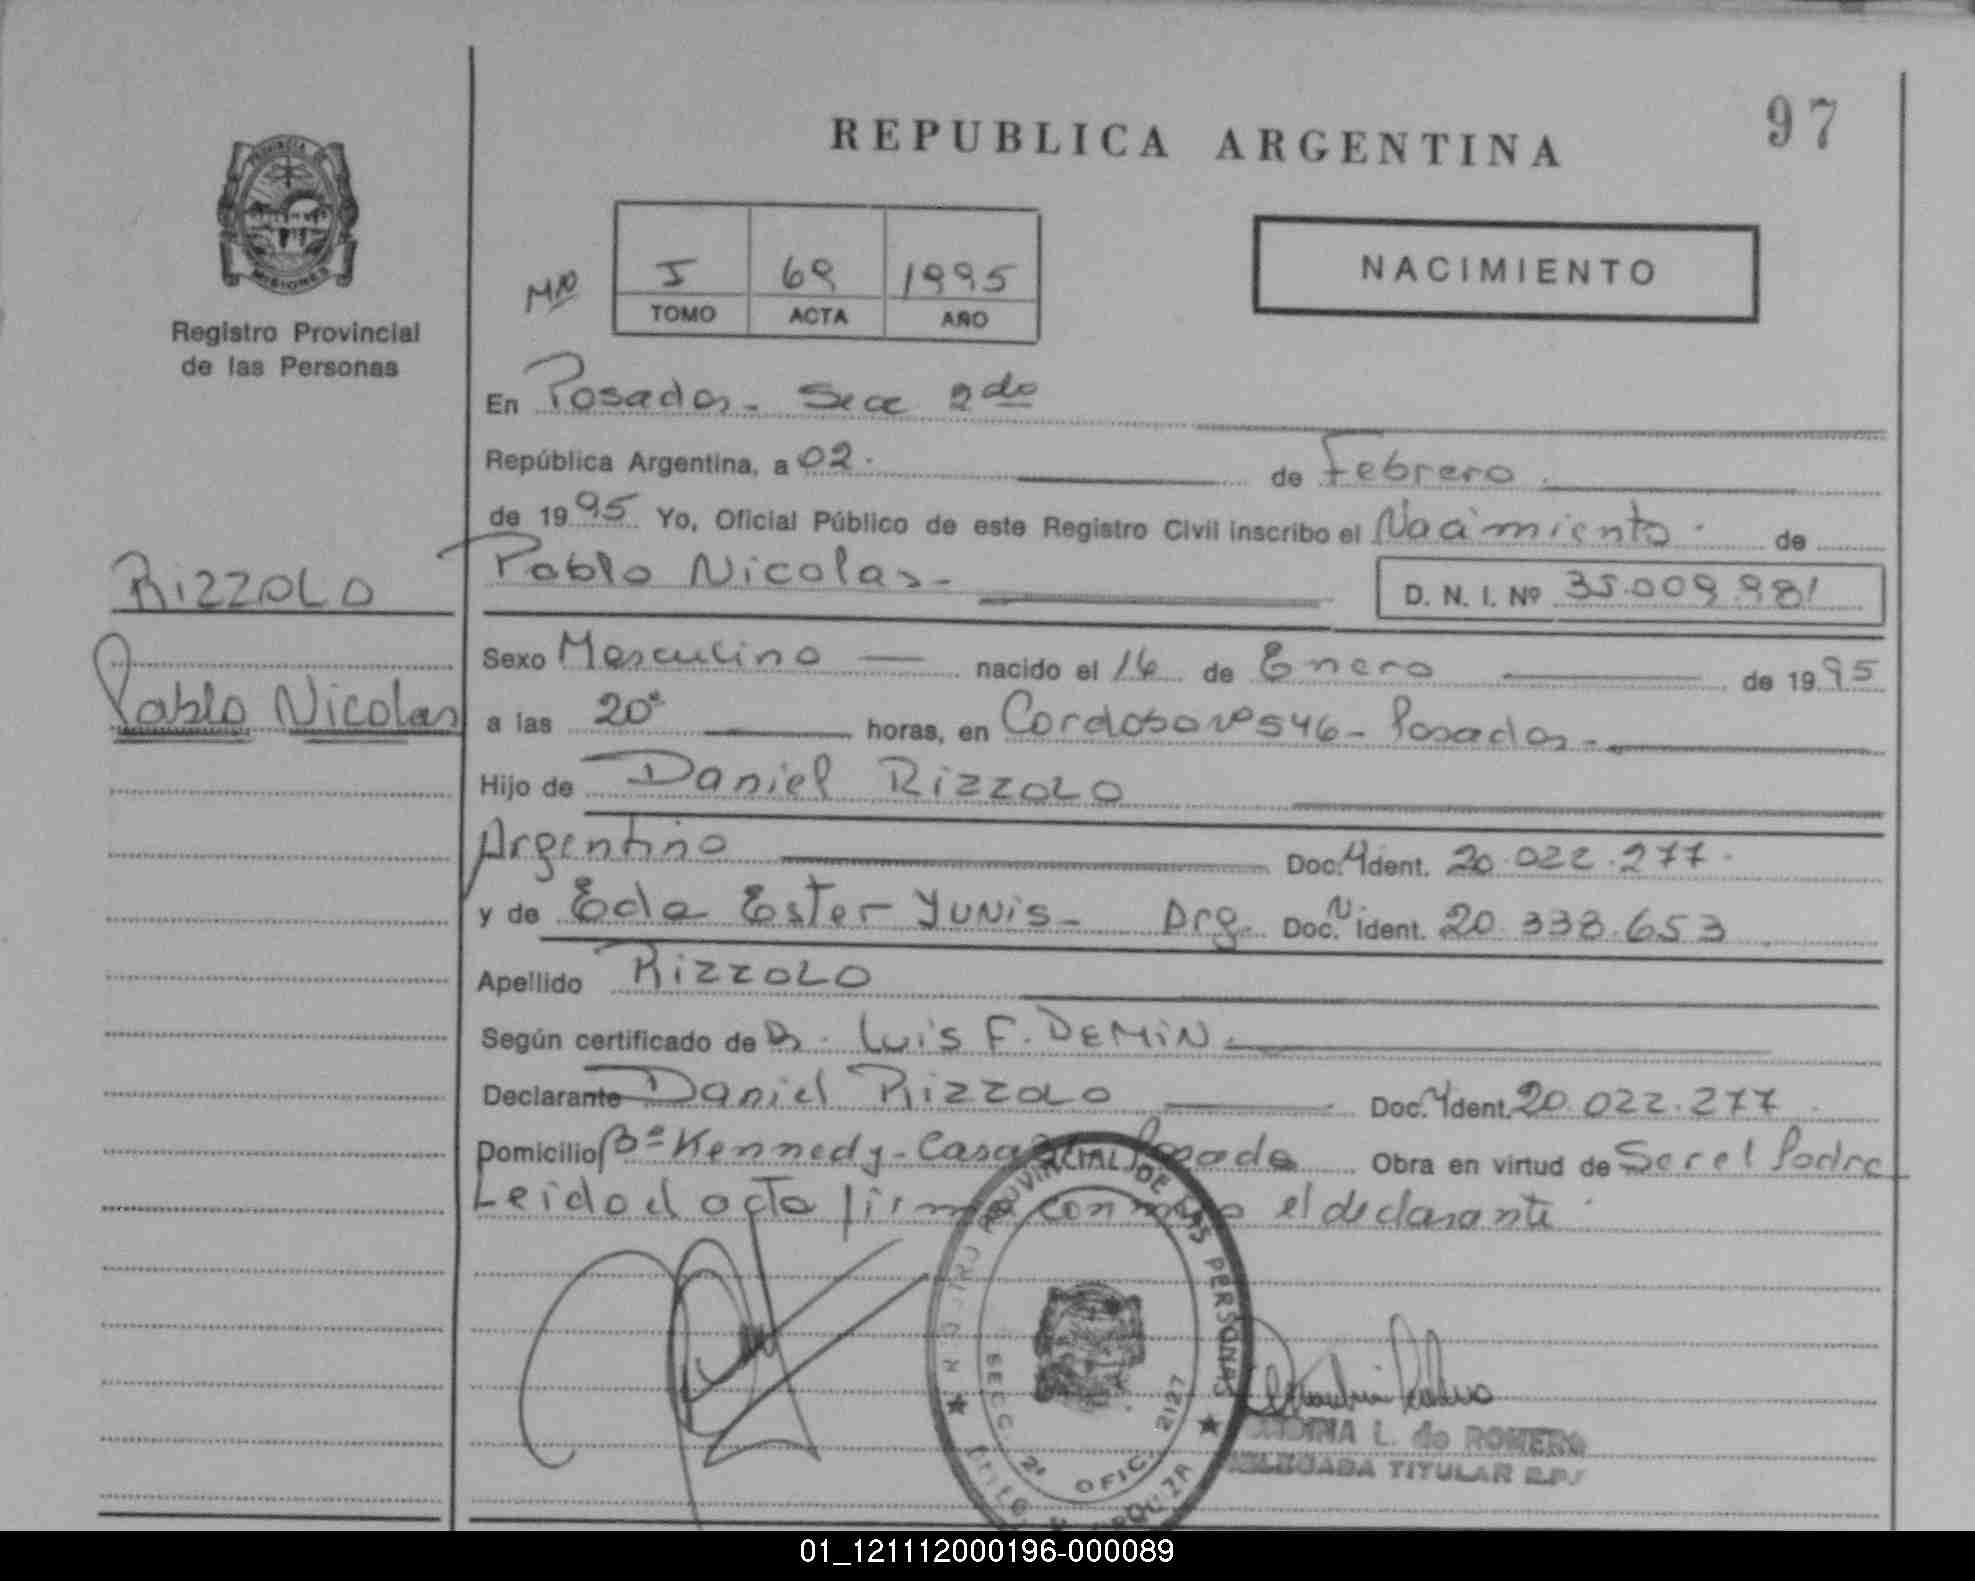 97
REPUBLICA ARGENTINA
PROVINCIA DE
MISIONES
Registro Provincial
de las Personas
I 69 1995
TOMO ACTA AÑO
NACIMIENTO
En Posadas - Secc 2da
República Argentina, a 02. de Febrero.
de 1995 Yo, Oficial Público de este Registro Civil inscribo el Nacimiento. de
Pablo Nicolas - D. N. I. Nº 35.009.981
RIZZOLO
Pablo Nicolas
Sexo Masculino — nacido el 16 de Enero de 1995
a las 20 horas, en Cordoba nº 546 - Posadas -
Hijo de Daniel RIZZOLO
Argentino Doc. Ident. 20.022.277.
y de Eda Ester YUNIS - Arg. Doc. N Ident. 20.338.653
Apellido RIZZOLO
Según certificado de Dr. Luis F. DEMIN.
Declarante Daniel RIZZOLO Doc. Ident. 20.022.277
Domicilio Bº Kennedy - Casa Posadas Obra en virtud de Ser el Padre
Leido el acta firma con el declarante.
PROVINCIAL DE LAS PERSONAS
SECC. 2ª OFIC. 2127
L. de ROMERO
TITULAR R.P.
01_121112000196-000089